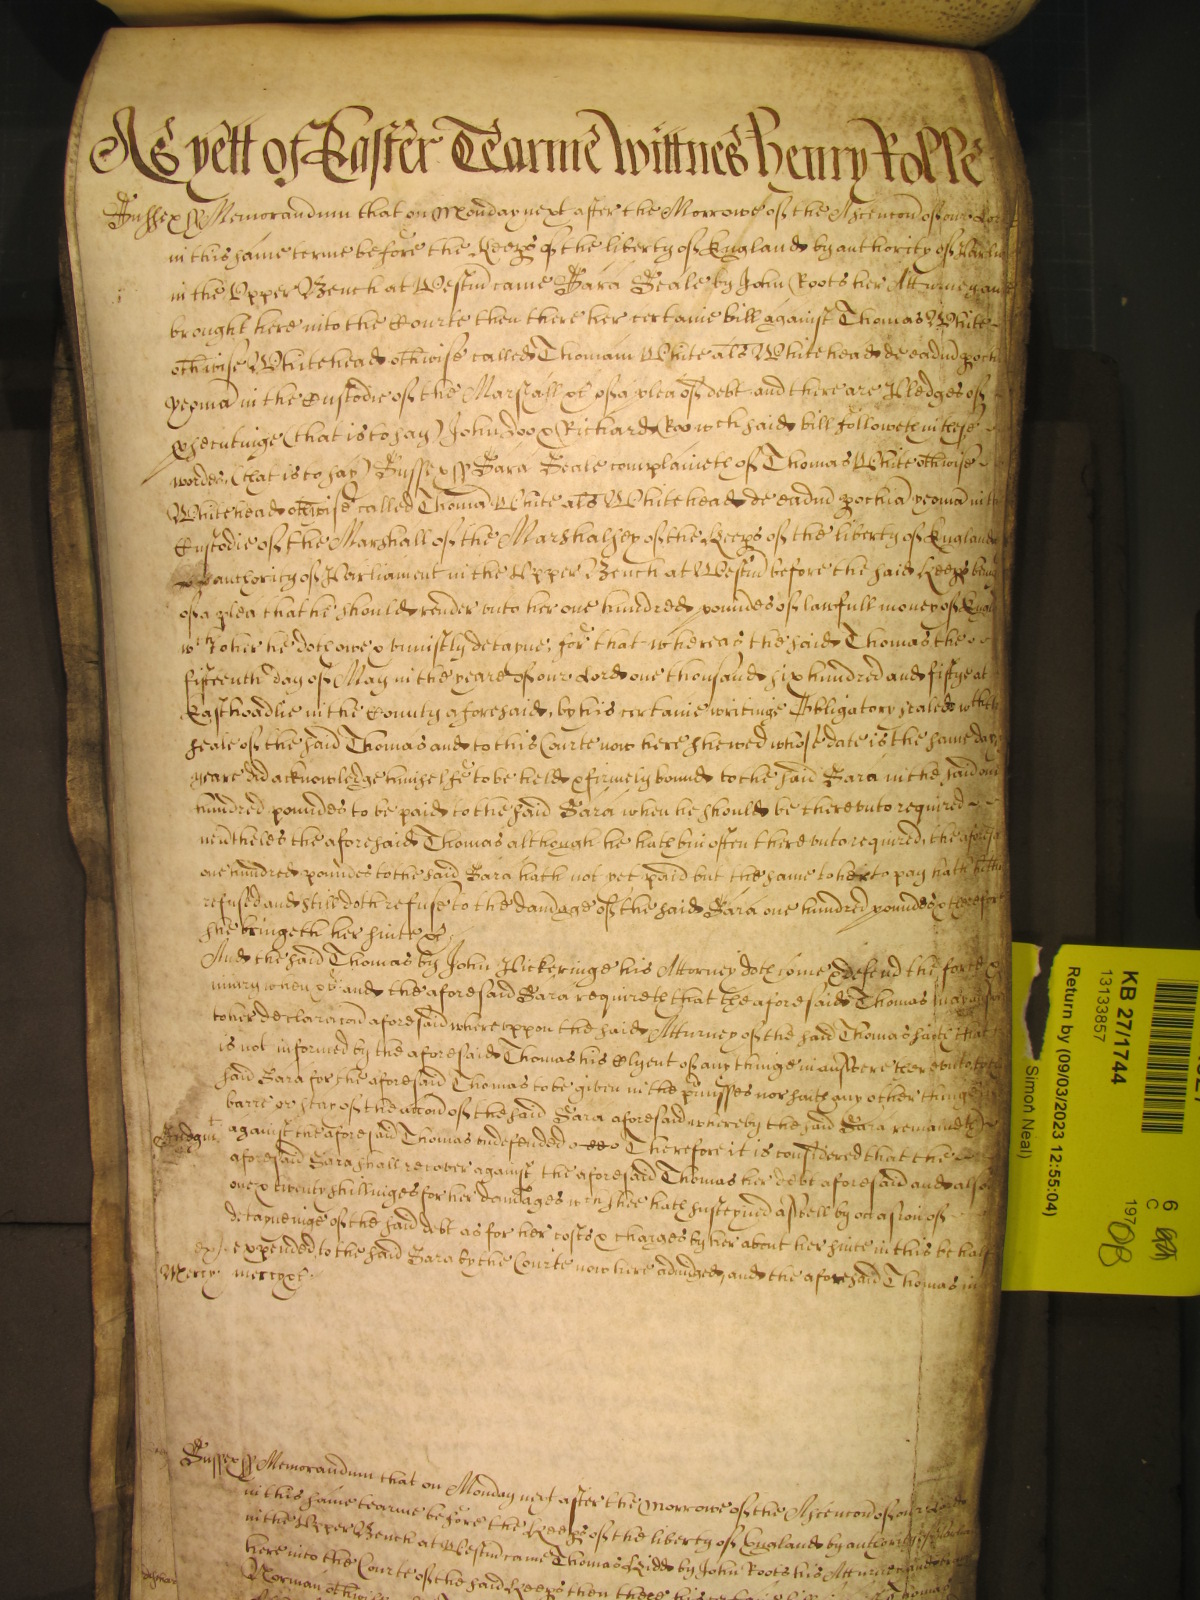 As yett of Easter Tearme Wittnes Henry Rolle
Sussex ss Memorandum that on Monday next after the Morrowe of the Ascencon of our Lor
in this same terme before the Keeps of the liberty of England by authority of Parlia
in the Upper Bench at Westm came Sara Seale by John Roots her Atturney and
brought here into the Courte then there her certaine bill against Thomas White
othwise Whitehead othwise called Thomam White als Whitehead de eadm
yeoma in the Custodie of the Marshall &c of a plea of debt and there are Pledges of
(that is to say) John Doo & Richard Roo wch said bill followeth in these
wordes (that is to say) Sussex ss Sara Seale complaineth of Thomas White othwise
Whitehead othwise called Thoma White als Whitehead de eadm yeoma in
Custodie of the Marshall of the Marshalsey of the Keeps of the liberty of England
authority of Parliament in the Upper Bench at Westm before the said Keeps
of a plea that he should render unto her one hundred poundes of lawfull money of
wch to her he doth owe & uniustly detayne, for that whereas the said Thomas the
fifteenth day of May in the yeare of our Lord one thousand six hundred and fiftye at
Easthoadlie in the County aforesaid, by his certaine writinge Obligatory sealed
seale of the said Thomas and to this Courte now here shewed whose date is the same day
yeare did acknowledge himselfe to be held & firmely bound to the said Sara in the said one
hundred poundes to be paid to the said Sara when he should be thereunto required
neutheles the aforesaid Thomas although he hath bin often thereunto required, the
one hundred poundes to the said Sara hath not yet paid but the same to her to pay hath
refused and still doth refuse to the damage of the said Sara one hundred poundes & therefore
she bringeth her suite &c
And the said Thomas by John Pickeringe his Attorney doth come & defend the force
iniury when &c and the aforesaid Sara requireth that the aforesaid Thomas
to her declaracon aforesaid whereuppon the said Atturney of the said Thomas saith that
is not informed by the aforesaid Thomas his Clyent of any thinge in answere thereunto
said Sara for the aforesaid Thomas to be given in the pmisses nor saith any other thinge
barre or stay of the accon of the said Sara aforesaid whereby the said Sara remaineth
Judgmt against the aforesaid Thomas undefended Therefore it is considered that the
aforesaid Sara shall recover against the aforesaid Thomas her debt aforesaid and also
one & twenty shillinges for her damages wch shee hath susteyned aswell by occasion of
detayneinge of the said debt as for her costs & charges by her about her suite in this behalf
expended to the said Sara by the Courte now here adiudged, and the aforesaid Thomas in
Mercy mercy &c.
Sussex ss Memorandum that on Monday next after the Morrowe of the Ascencon of our Lord
in this same tearme before the Keeps of the liberty of England by authority of
in the Upper Bench at Westm came Thomas by John Roots his Atturney and
here into the Courte of the said Keeps then there
Norman othwise Thomas
KB 27/1744
13133857
Return by (09/03/2023 12:55:04)
Simon Neal)
6
C
197